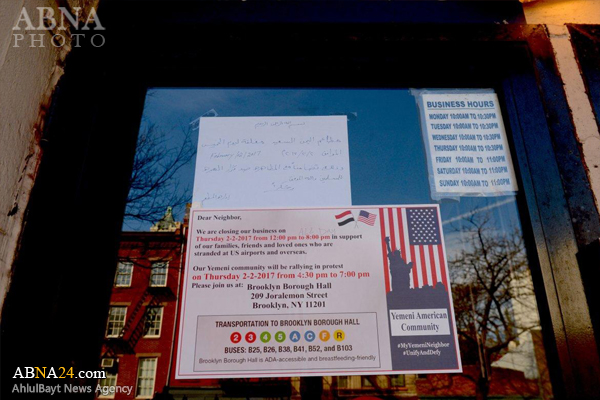 ABNA
PHOTO
BUSINESS HOURS
MONDAY 10:00AM TO 10:30PM
TUESDAY 10:00AM TO 10:30PM
WEDNESDAY 10:00AM TO 10:30PM
THURSDAY 10:00AM TO 10:30PM
FRIDAY 10:00AM TO 11:00PM
SATURDAY 10:00AM TO 11:00PM
SUNDAY 11:00AM TO 10:30PM
Dear Neighbor,
We are closing our business on
Thursday 2-2-2017 from 12:00 pm to 8:00 pm in support
of our families, friends and loved ones who are
stranded at US airports and overseas.
Our Yemeni community will be rallying in protest
on Thursday 2-2-2017 from 4:30 pm to 7:00 pm
Please join us at: Brooklyn Borough Hall
209 Joralemon Street
Brooklyn, NY 11201
TRANSPORTATION TO BROOKLYN BOROUGH HALL
2 3 4 5 A C F R
BUSES: B25, B26, B38, B41, B52, and B103
Brooklyn Borough Hall is ADA-accessible and breastfeeding-friendly
Yemeni American
Community
#MyYemeniNeighbor
#UnifyAndDefy
ABNA24.com
AhlulBayt News Agency